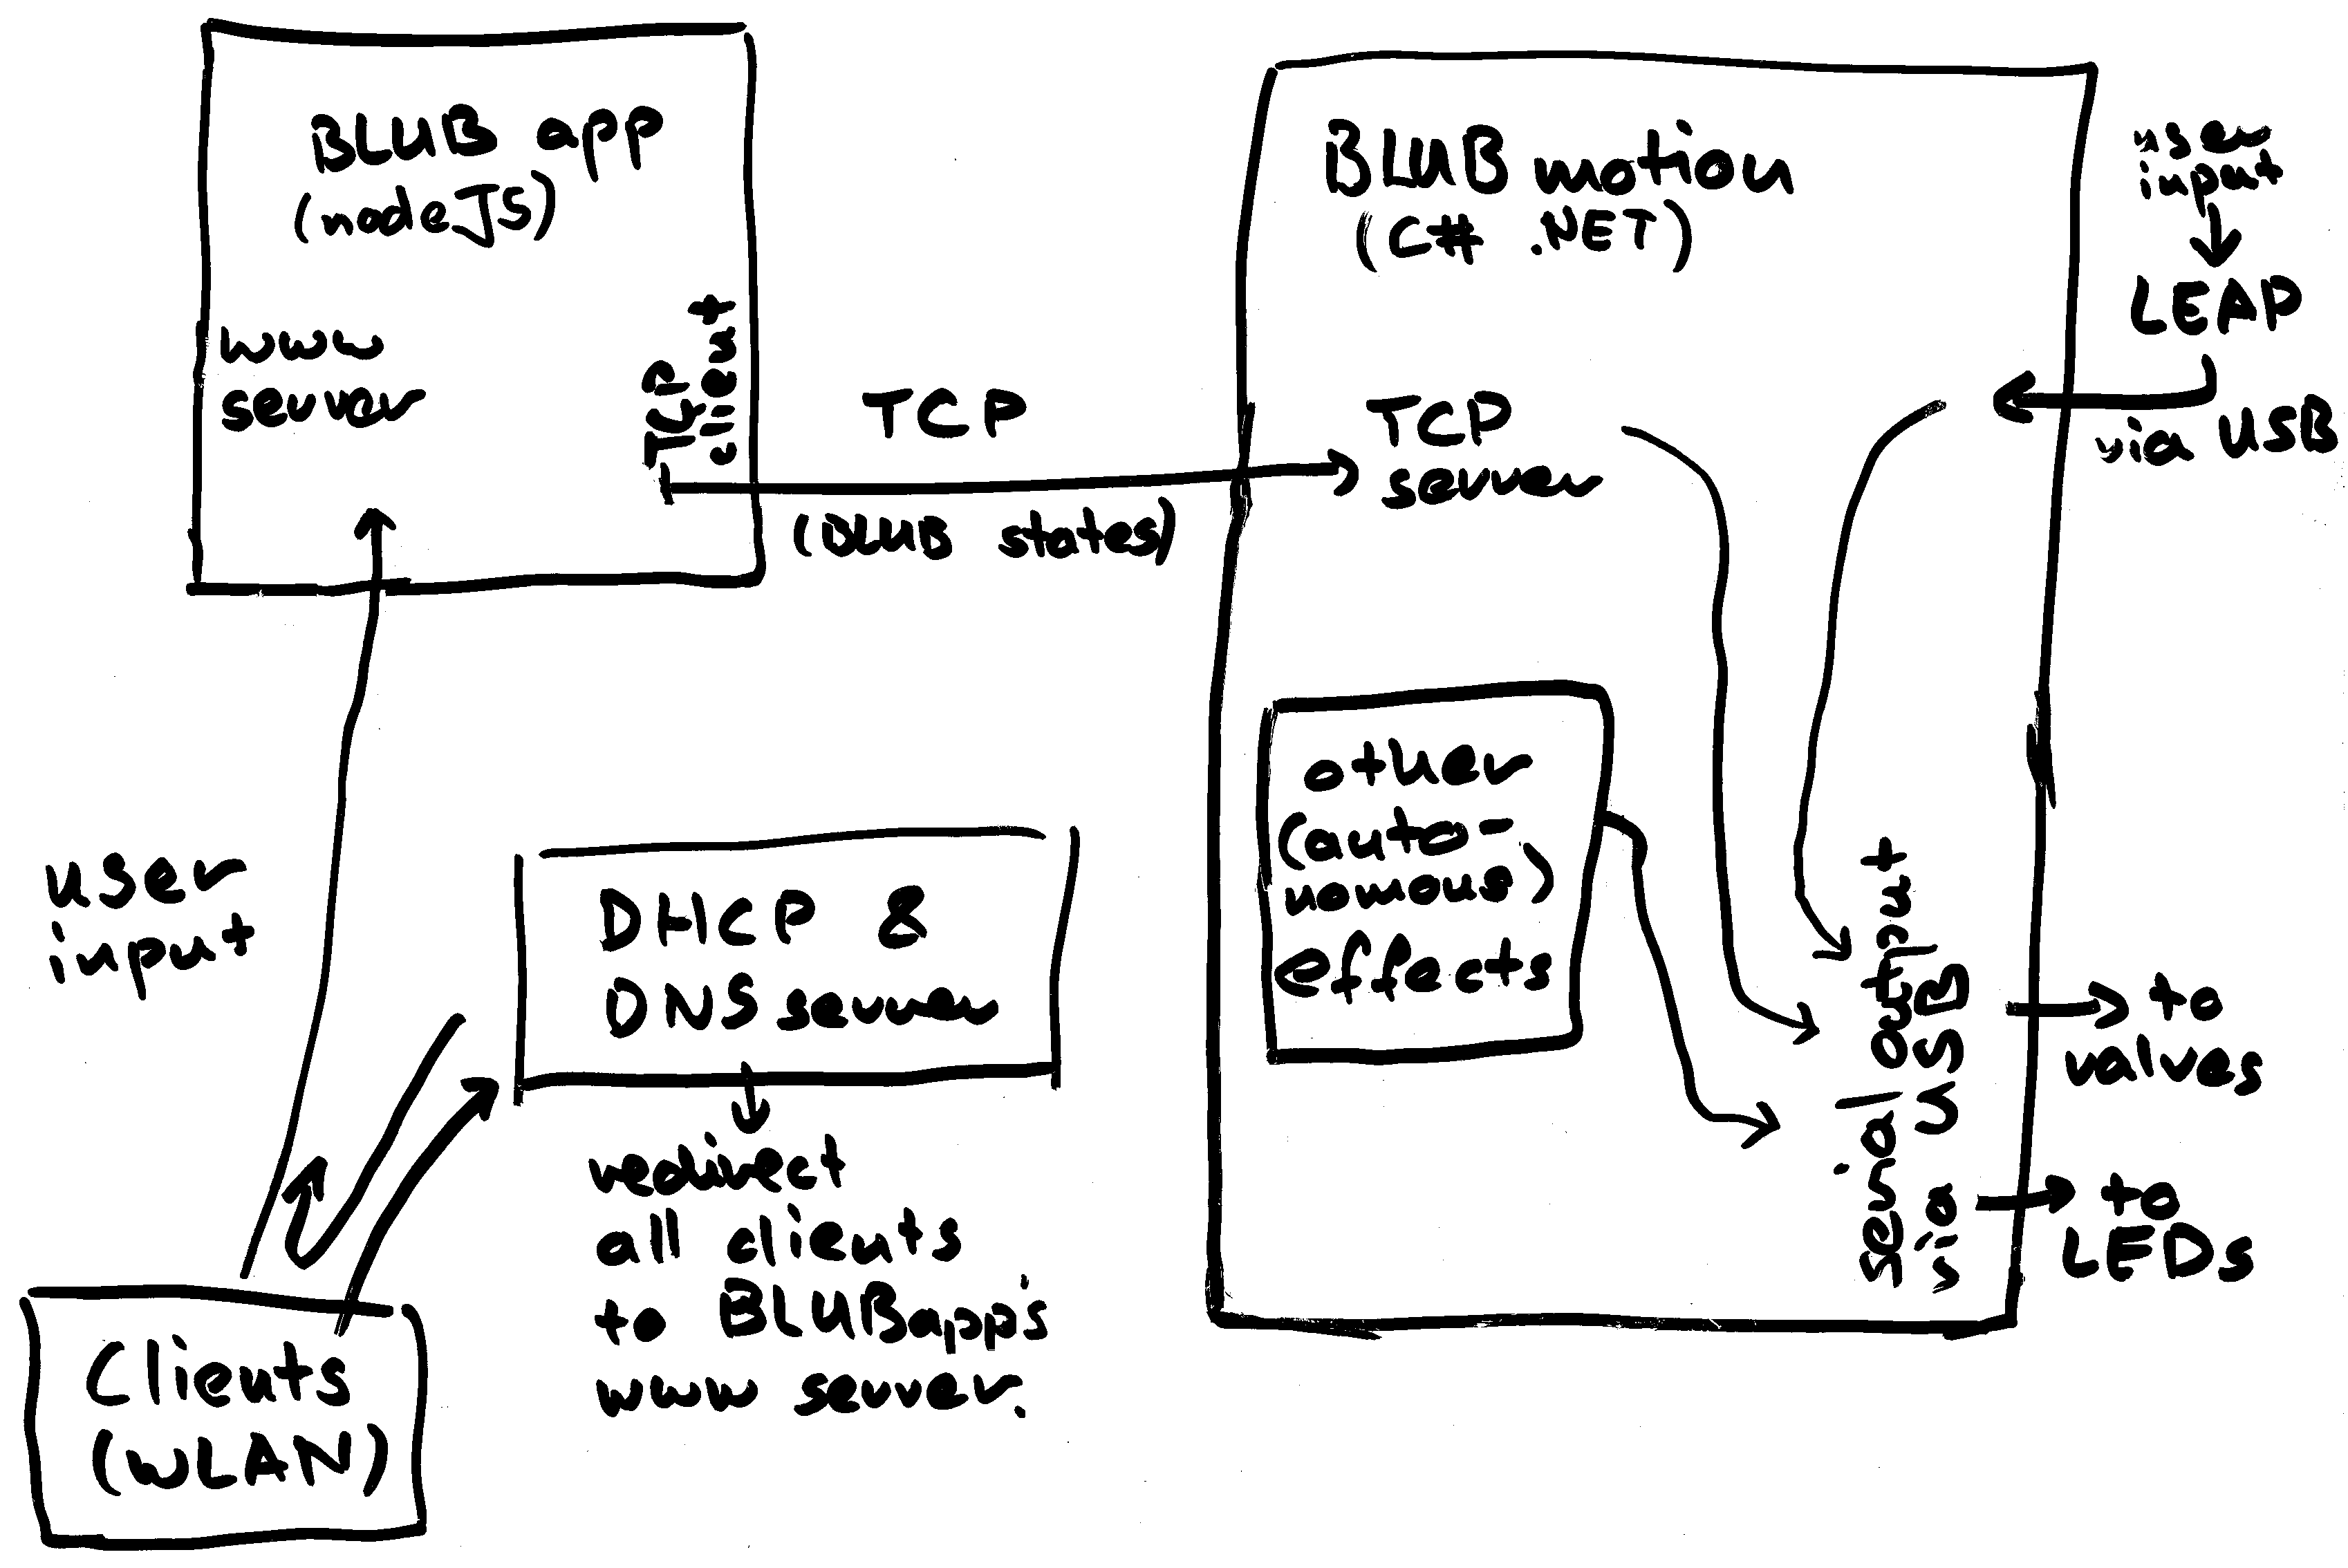 BLUB app
(nodeJS)
www
server
TCP
client
TCP
(BLUB states)
BLUB motion
(C# .NET)
TCP
server
user
input
LEAP
via USB
other
(auto-
nomous)
effects
serial output
via USB
to
valves
to
LEDs
user
input
DHCP &
DNS server
redirect
all clients
to BLUBapp's
www server.
Clients
(WLAN)